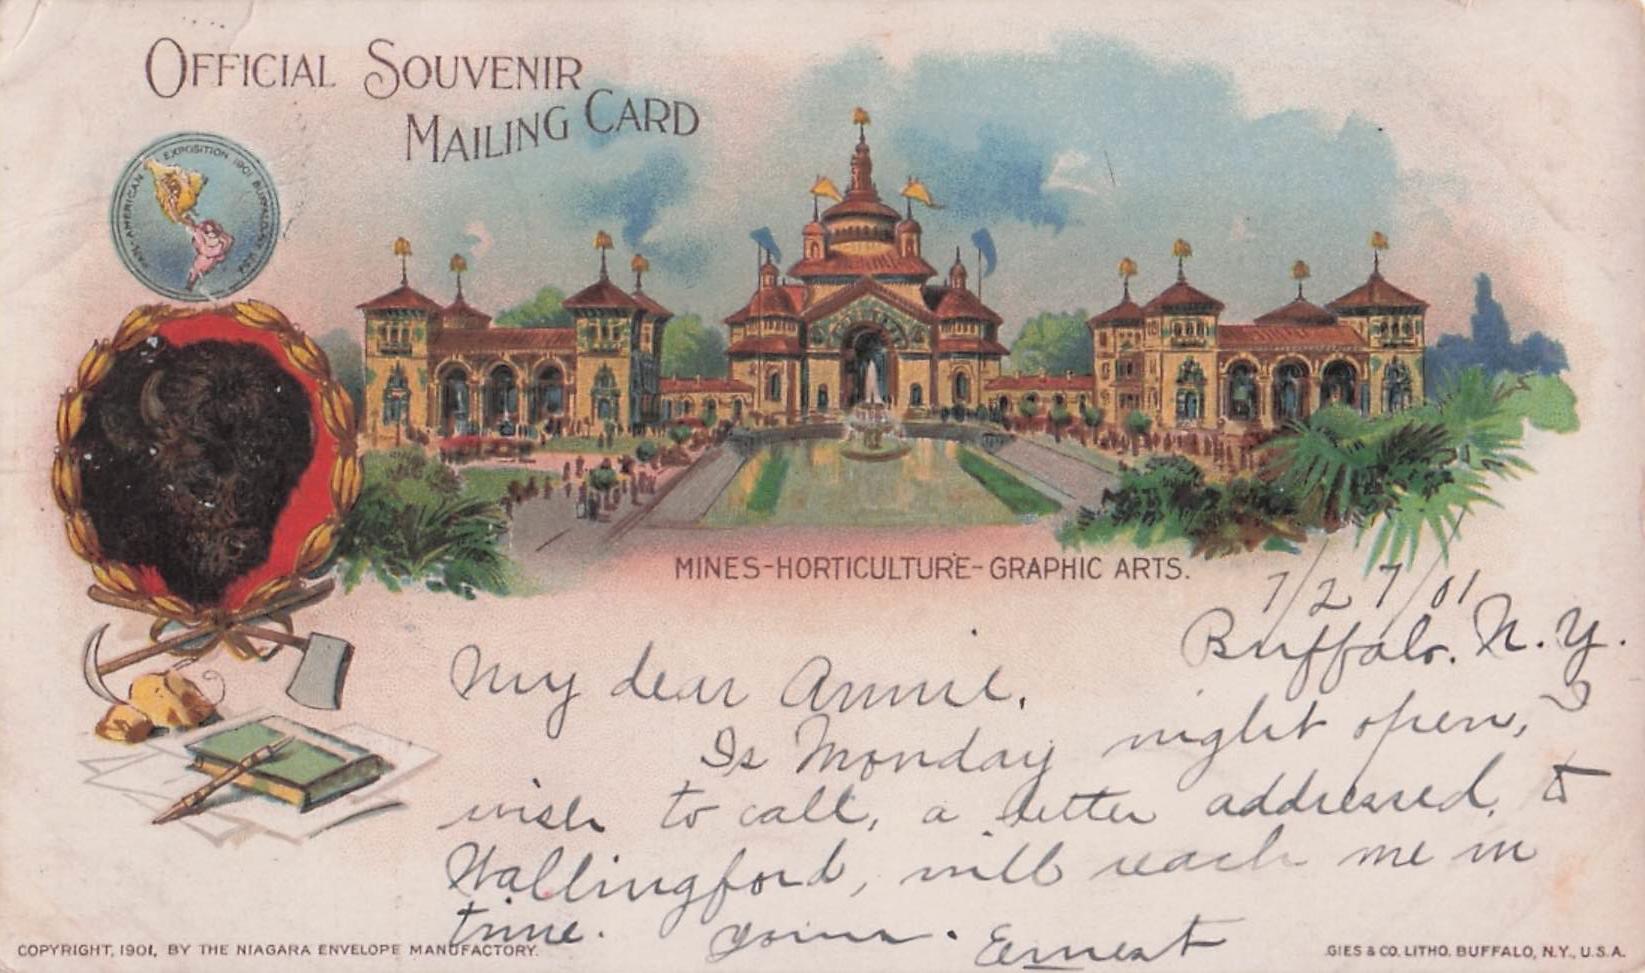 OFFICIAL SOUVENIR
MAILING CARD
PAN-AMERICAN EXPOSITION 1901 BUFFALO N.Y. U.S.A.
MINES-HORTICULTURE-GRAPHIC ARTS.
7/27/01
Buffalo. N. Y.
My dear Annie,
Is Monday night open, I
wish to call, a letter addressed, to
Wallingford, will reach me in
time. Yours. Ernest
COPYRIGHT, 1901, BY THE NIAGARA ENVELOPE MANUFACTORY.
GIES & CO. LITHO. BUFFALO, N.Y., U.S.A.